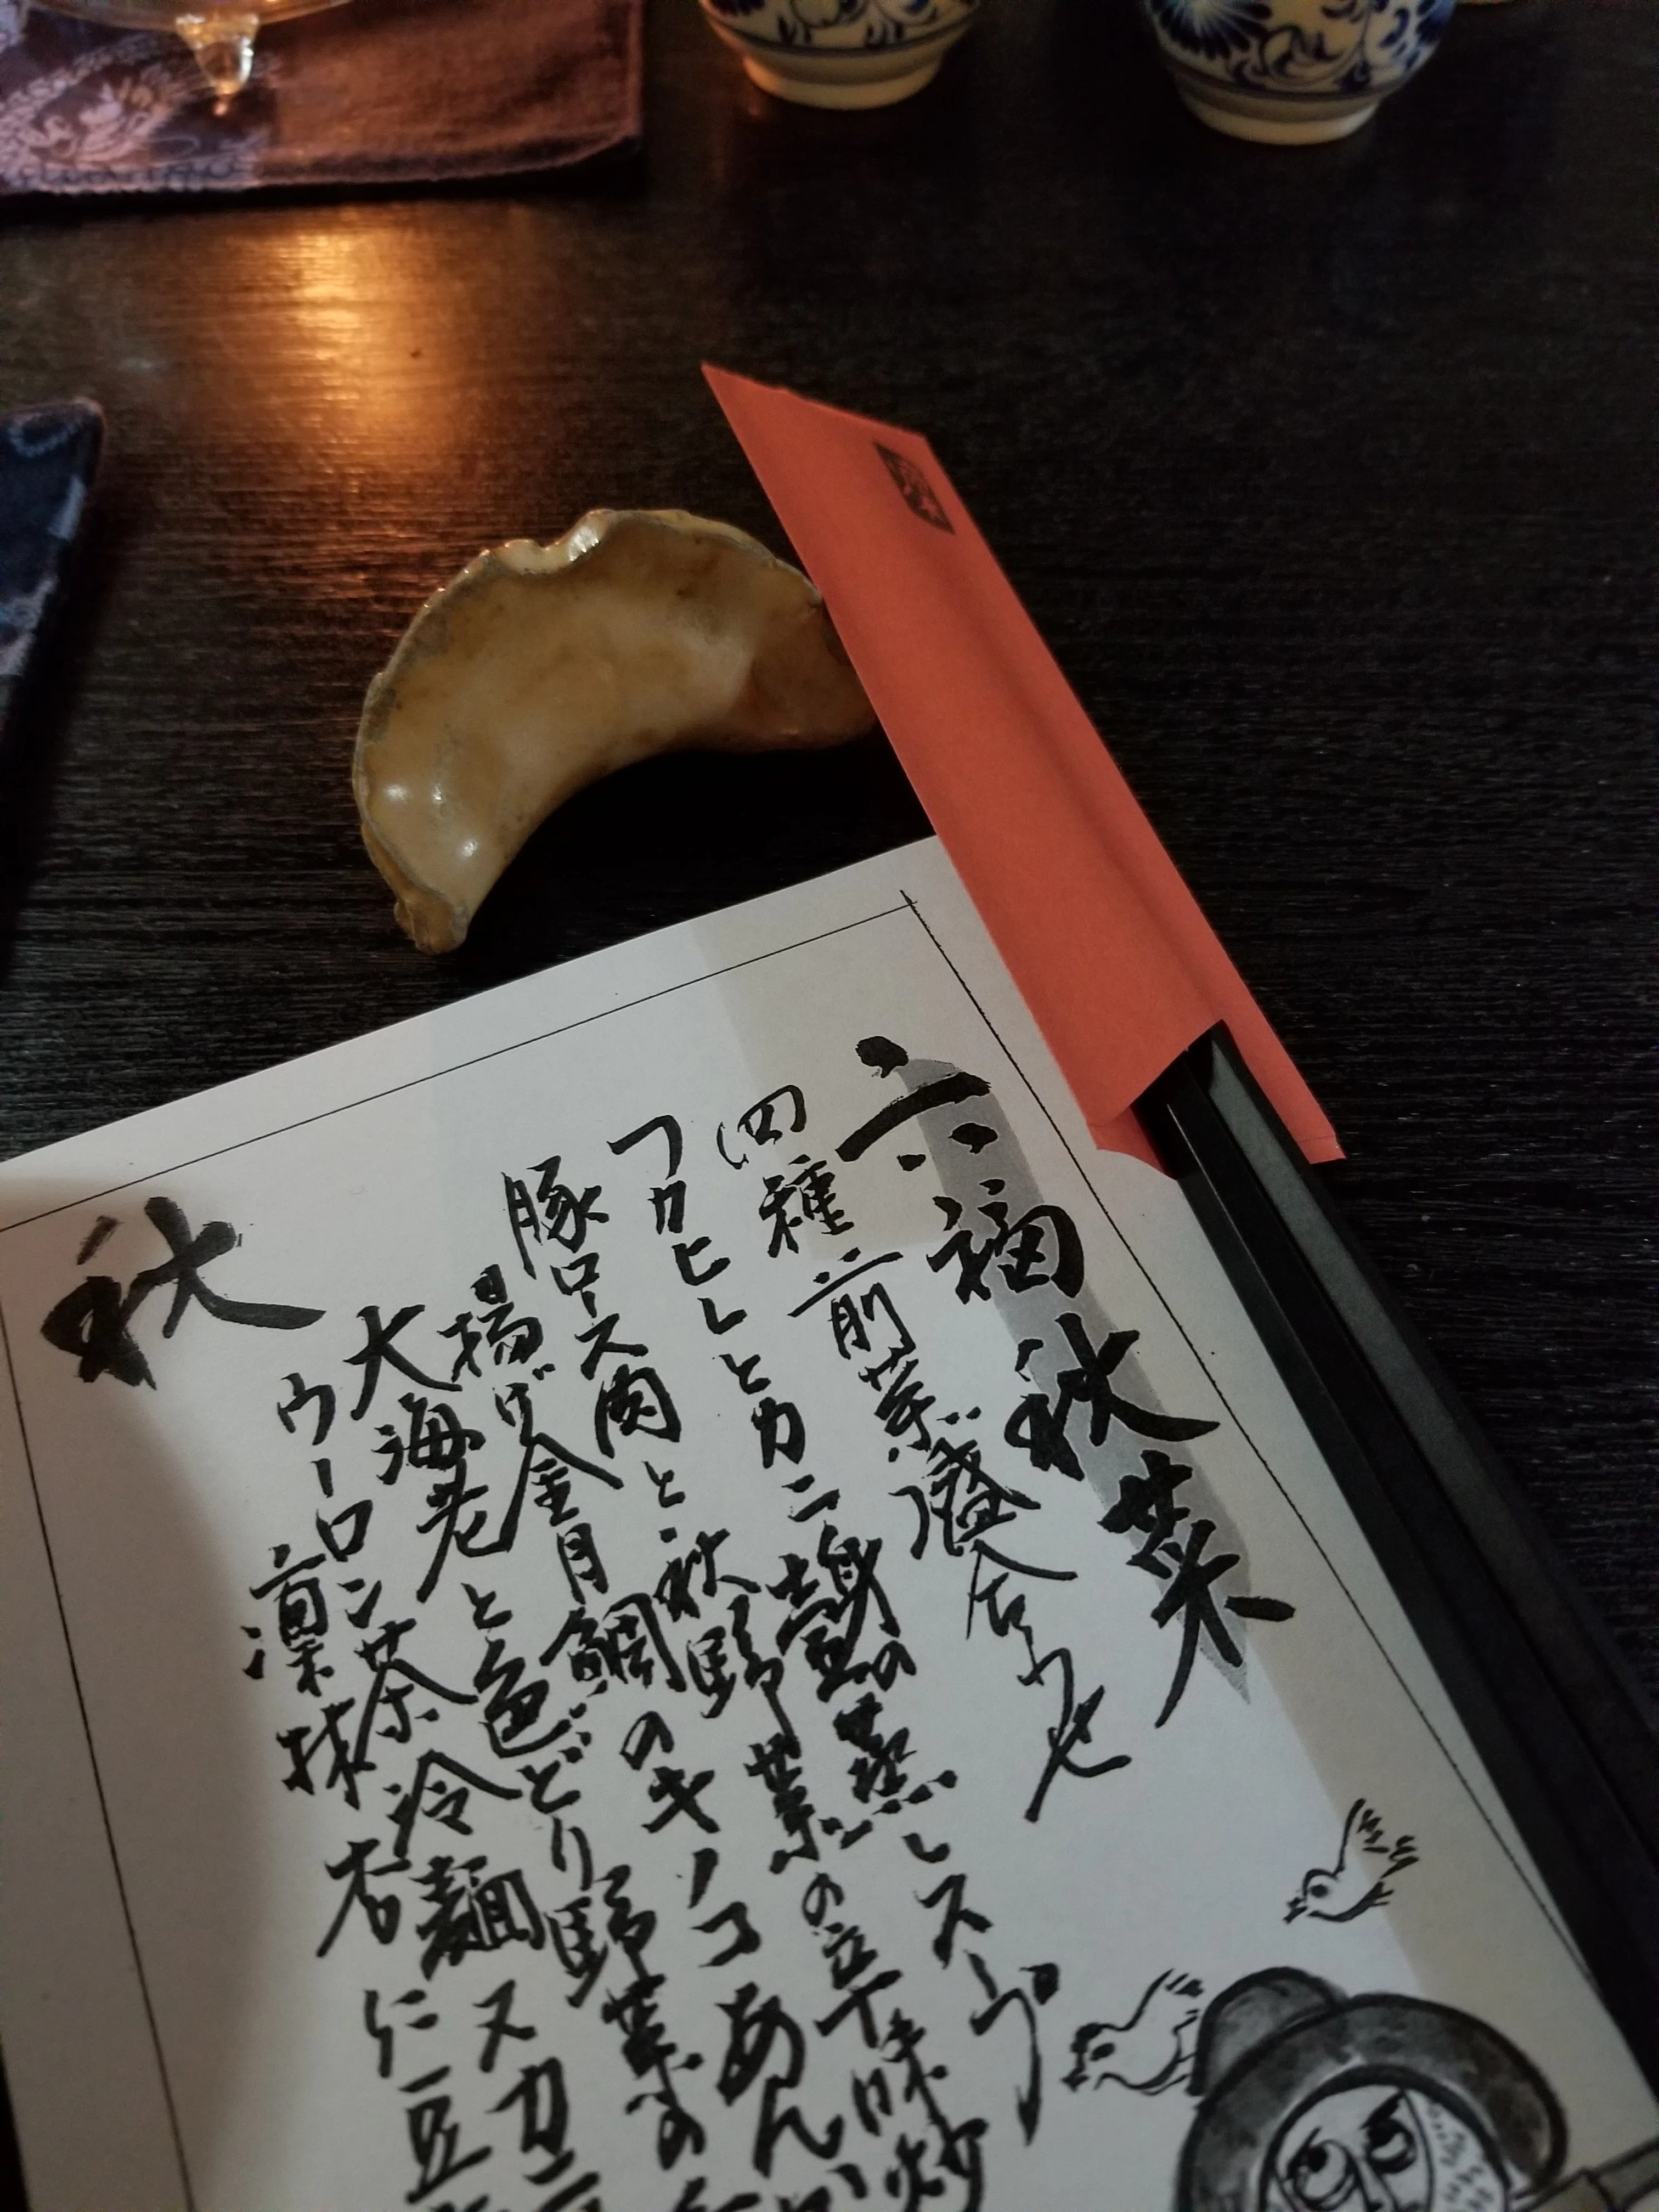 六福秋菜
四種前菜盛合わせ
フカヒレとカニ身の壷蒸しスープ
豚ロース肉と秋野菜の辛味炒
揚げ金目鯛のキノコあんか
大海老と色どり野菜の
ウーロン茶冷麺 又カニ
凛抹杏仁豆
秋